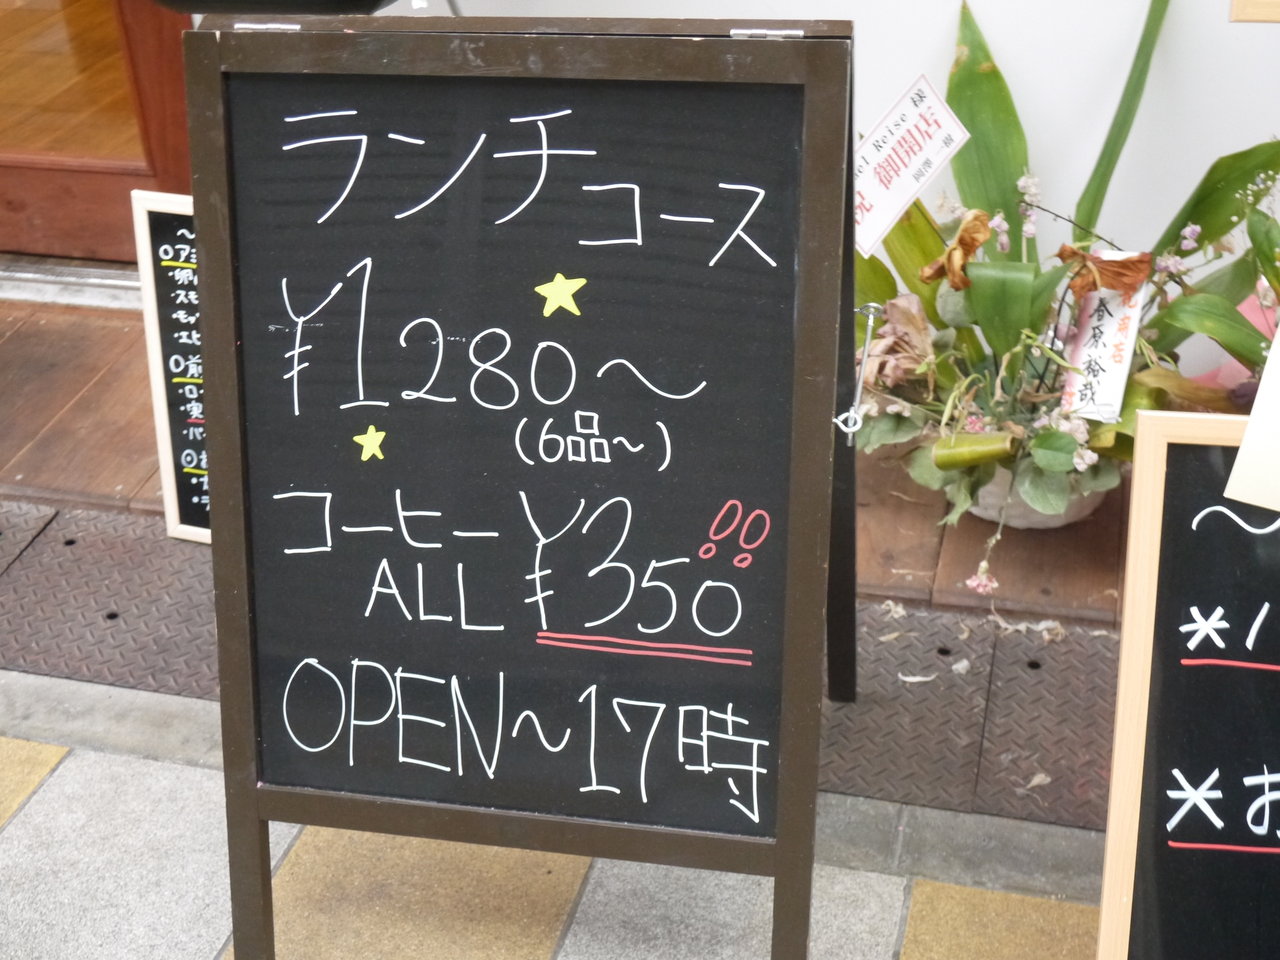 ランチコース
¥1280〜
(6品〜)
コーヒー
ALL ¥350!!
OPEN〜17時
Reise 様
祝 御開店
岡澤 一樹
春原 裕哉
〜
○前